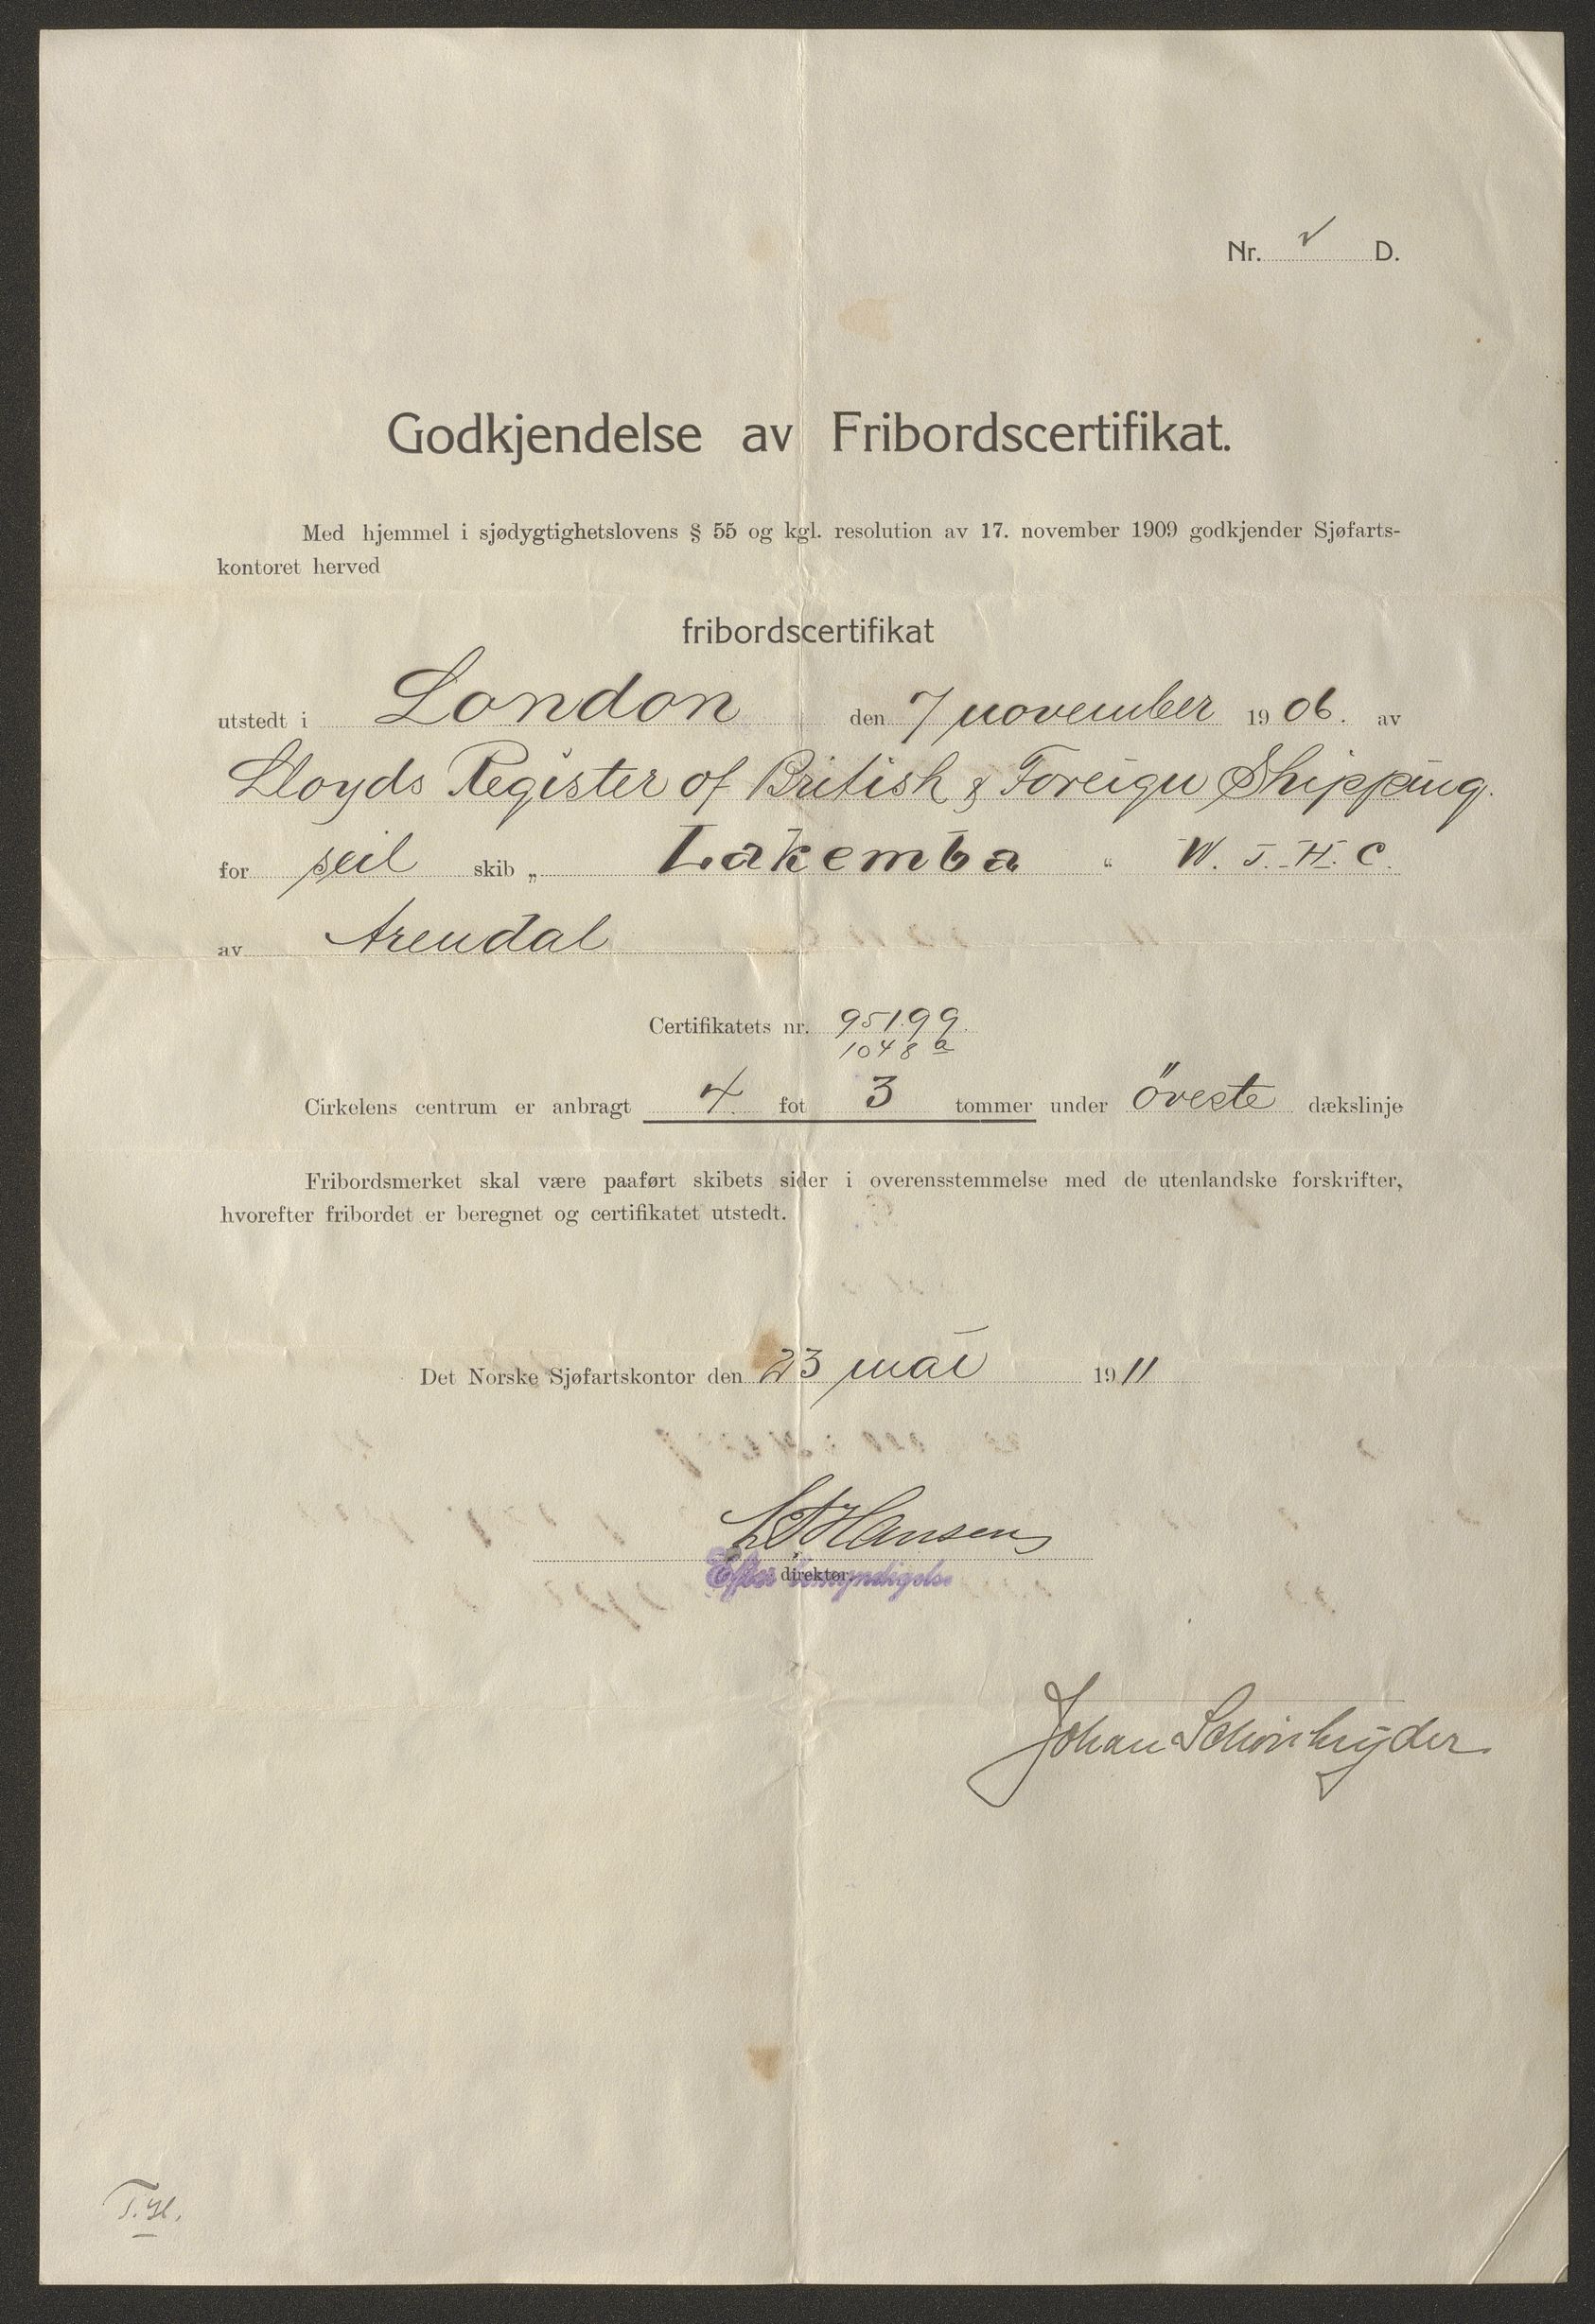 Nr. D.
Godkjendelse av Fribordscertifikat.
Med hjemmel i sjødygtighetslovens § 55 og kgl. resolution av 17. november 1909 godkjender Sjøfarts-
kontoret herved
fribordscertifikat
utstedt i London den 7 november 1906. av
Lloyds Register of British & Foreign Shipping.
for seil skib „ Lakemba “ W. T. H. C.
av Arendal
Certifikatets nr. 95199
1048 a
Cirkelens centrum er anbragt 4 fot 3 tommer under øverste dækslinje
Fribordsmerket skal være paaført skibets sider i overensstemmelse med de utenlandske forskrifter,
hvorefter fribordet er beregnet og certifikatet utstedt.
Det Norske Sjøfartskontor den 23 mai 1911
Hansen
direktør.
Efter bemyndigelse
Johan